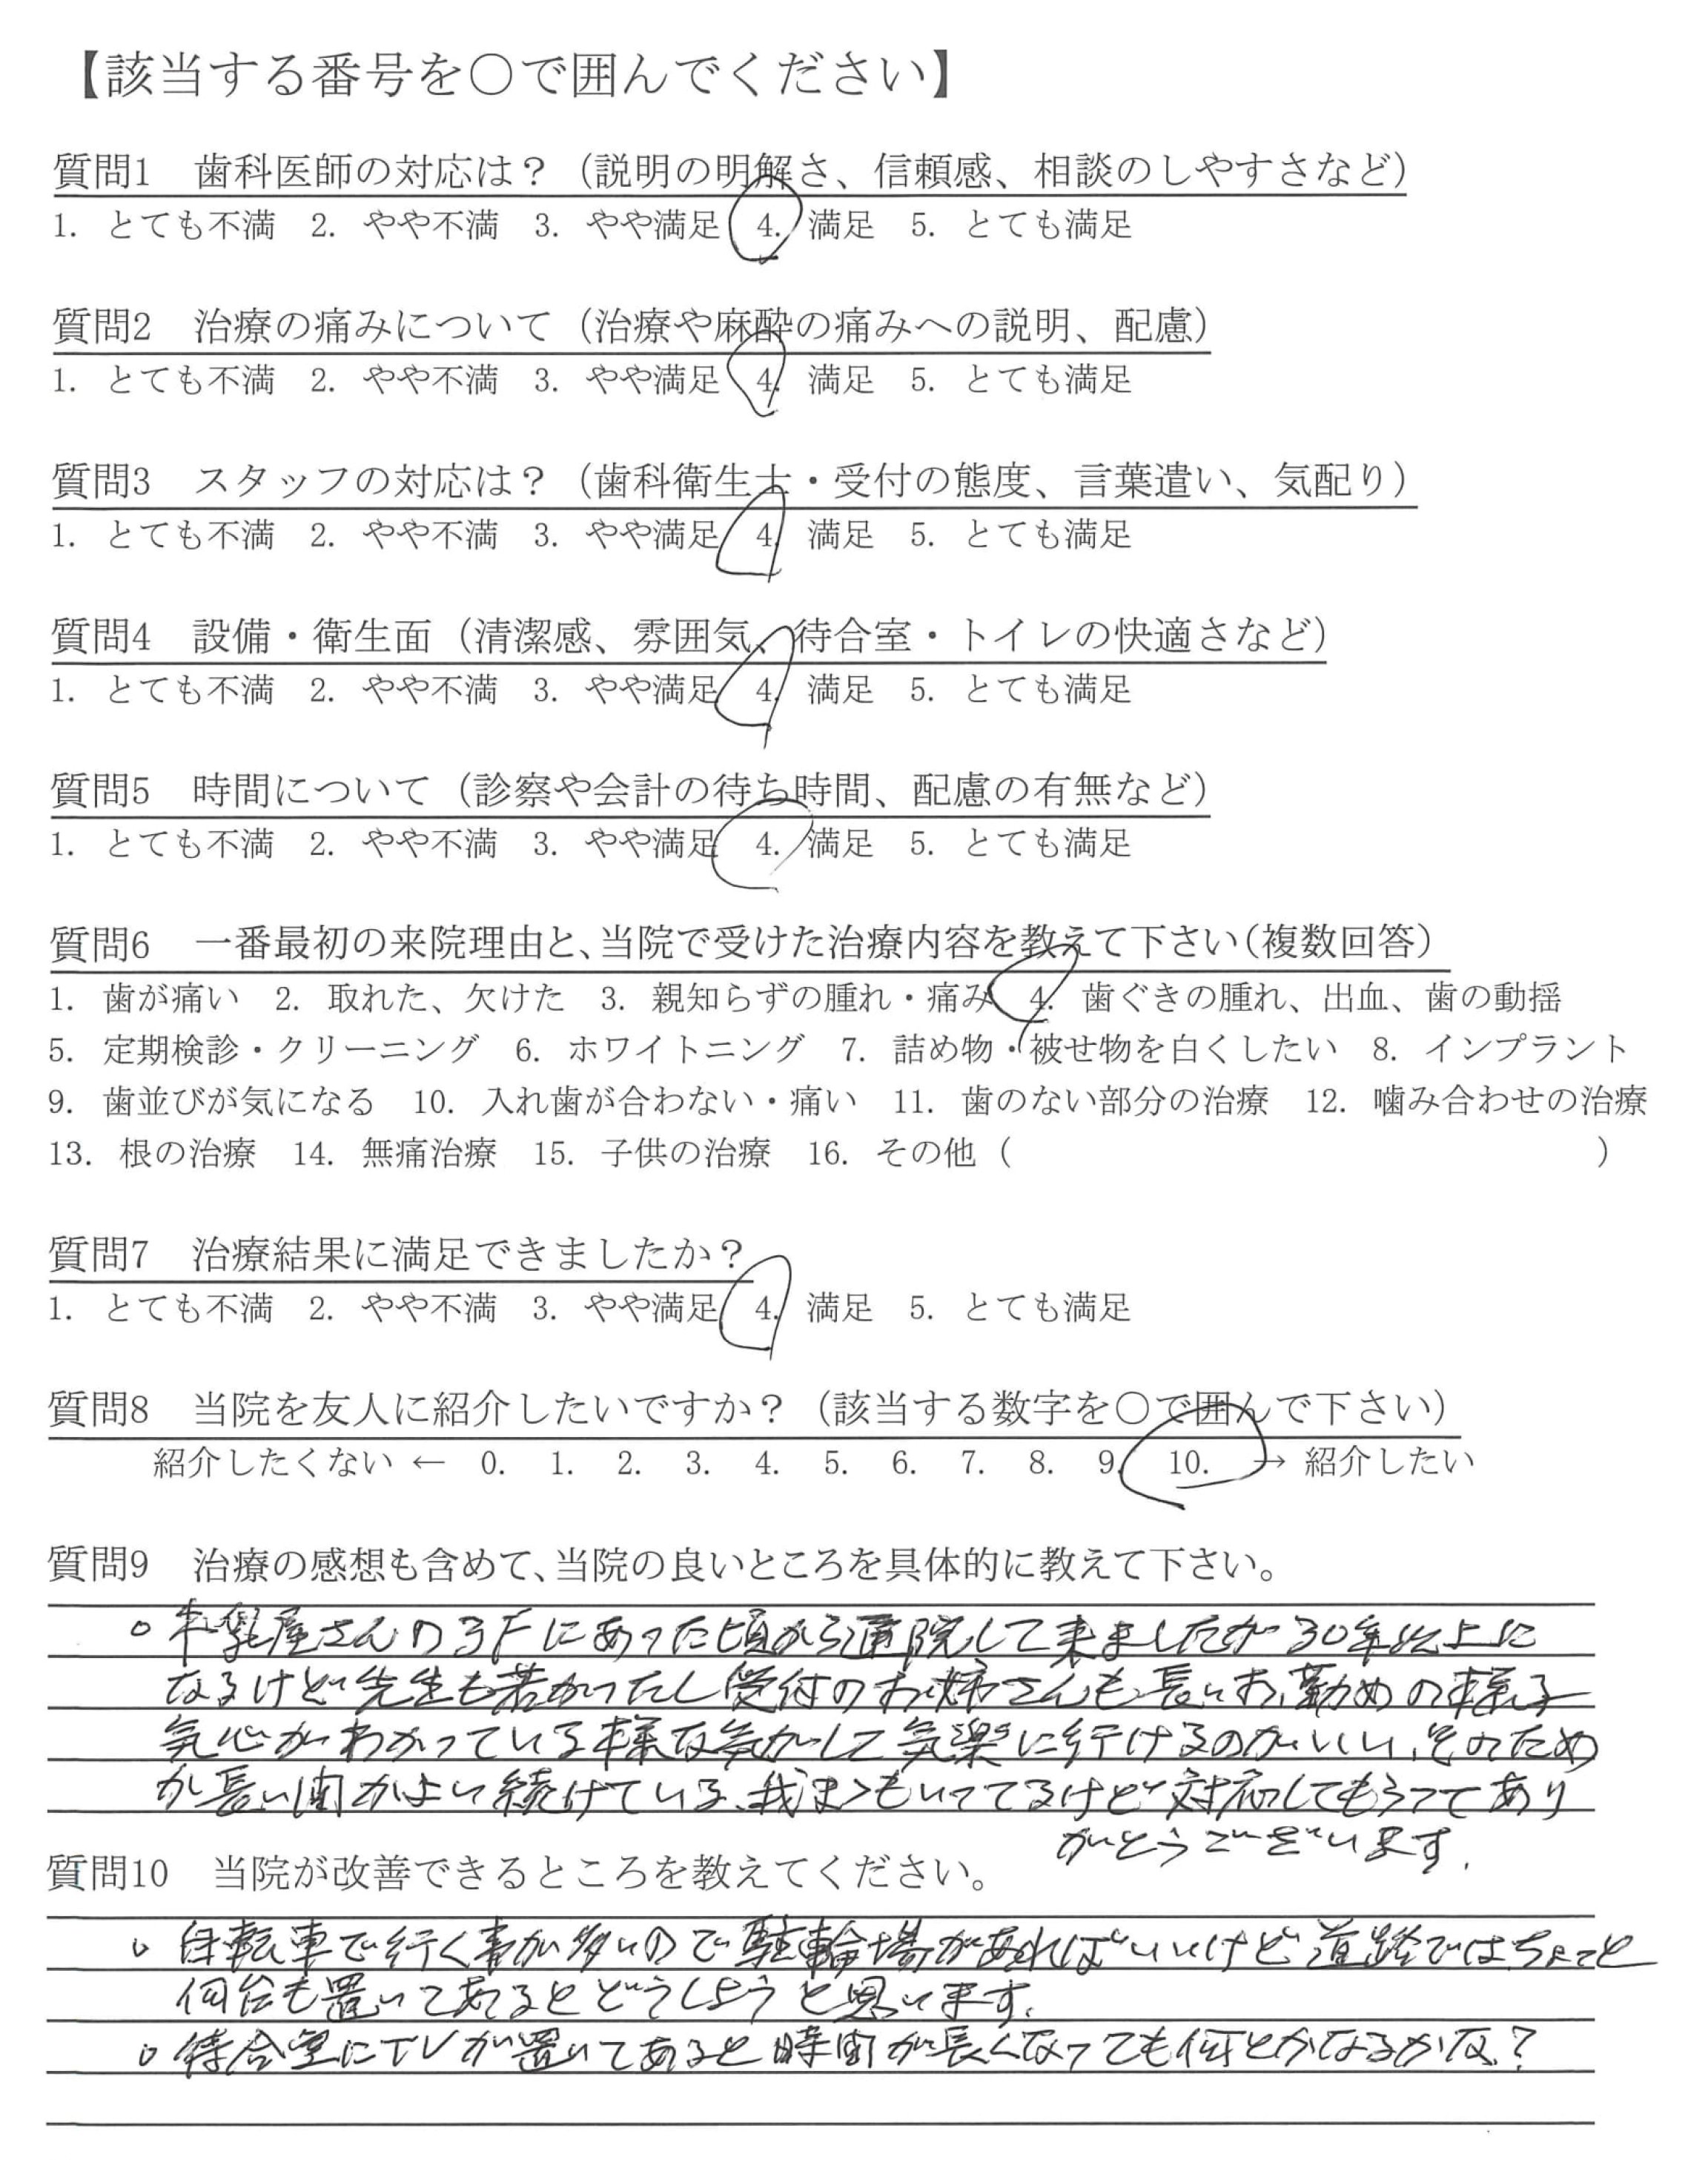 【該当する番号を○で囲んでください】
質問1 歯科医師の対応は？（説明の明解さ、信頼感、相談のしやすさなど）
1. とても不満 2. やや不満 3. やや満足 4. 満足 5. とても満足
質問2 治療の痛みについて（治療や麻酔の痛みへの説明、配慮）
1. とても不満 2. やや不満 3. やや満足 4. 満足 5. とても満足
質問3 スタッフの対応は？（歯科衛生士・受付の態度、言葉遣い、気配り）
1. とても不満 2. やや不満 3. やや満足 4. 満足 5. とても満足
質問4 設備・衛生面（清潔感、雰囲気、待合室・トイレの快適さなど）
1. とても不満 2. やや不満 3. やや満足 4. 満足 5. とても満足
質問5 時間について（診察や会計の待ち時間、配慮の有無など）
1. とても不満 2. やや不満 3. やや満足 4. 満足 5. とても満足
質問6 一番最初の来院理由と、当院で受けた治療内容を教えて下さい（複数回答）
1. 歯が痛い 2. 取れた、欠けた 3. 親知らずの腫れ・痛み 4. 歯ぐきの腫れ、出血、歯の動揺
5. 定期検診・クリーニング 6. ホワイトニング 7. 詰め物・被せ物を白くしたい 8. インプラント
9. 歯並びが気になる 10. 入れ歯が合わない・痛い 11. 歯のない部分の治療 12. 噛み合わせの治療
13. 根の治療 14. 無痛治療 15. 子供の治療 16. その他（ ）
質問7 治療結果に満足できましたか？
1. とても不満 2. やや不満 3. やや満足 4. 満足 5. とても満足
質問8 当院を友人に紹介したいですか？（該当する数字を○で囲んで下さい）
紹介したくない ← 0. 1. 2. 3. 4. 5. 6. 7. 8. 9. 10. → 紹介したい
質問9 治療の感想も含めて、当院の良いところを具体的に教えて下さい。
○ 牛乳屋さんの3Fにあった頃から通院して来ましたが30年以上に
なるけど先生も若かったし受付のお姉さんも長いお勤めの様子
気心がわかっている様な気がして気楽に行けるのがいい、そのため
か長い間かよい続けている、我まゝもいってるけど対応してもらってあり
がとうございます.
質問10 当院が改善できるところを教えてください。
○ 自転車で行く事が多いので駐輪場があればいいけど道路ではちょっと
何台も置いてあるとどうしようと思います.
○ 待合室にTVが置いてあると時間が長くなっても何とかなるかな？